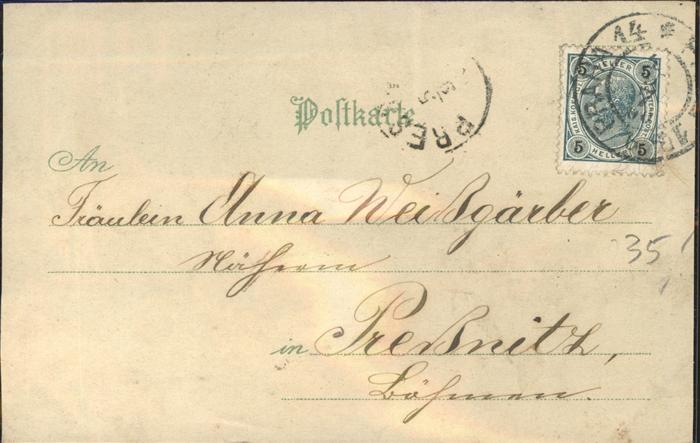 Postkarte
PRES
5 HELLER 5
5 HELLER 5
An
Fräulein Anna Weißgärber
Näherin
35
in Preßnitz,
Böhmen.